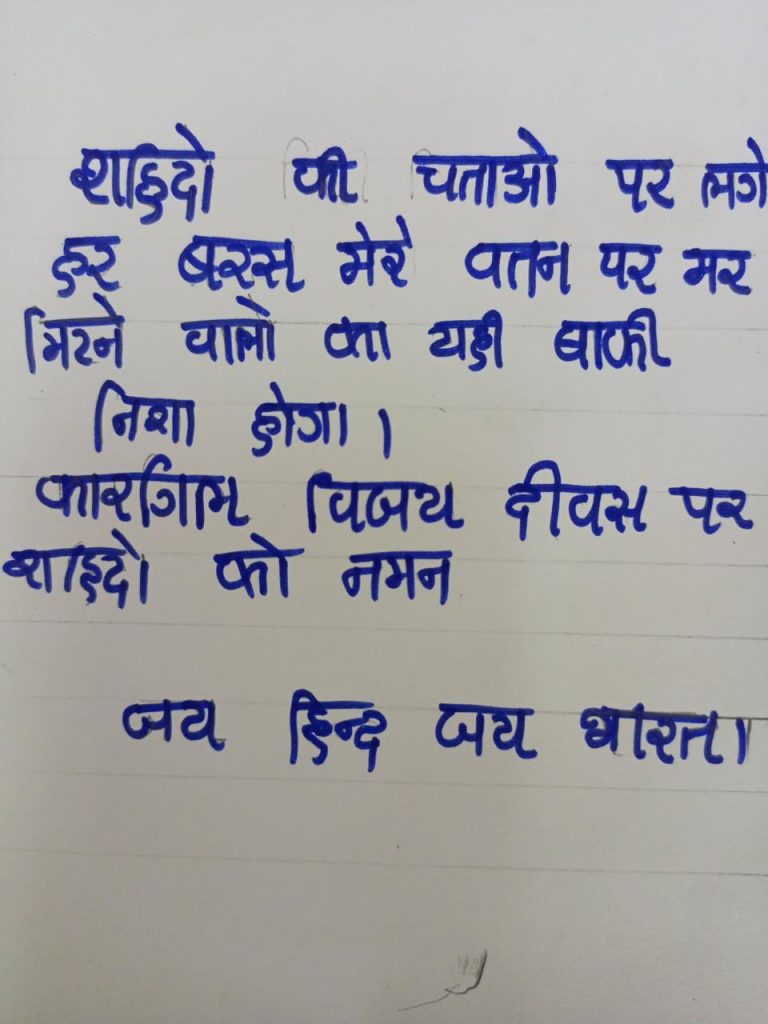 शहिदो की चताओ पर लगे
हर बरस मेरे वतन पर मर
मिटने वालो का यही बाकी
निशा होगा।
कारगिल विजय दीवस पर
शहिदो को नमन
जय हिन्द जय भारत।